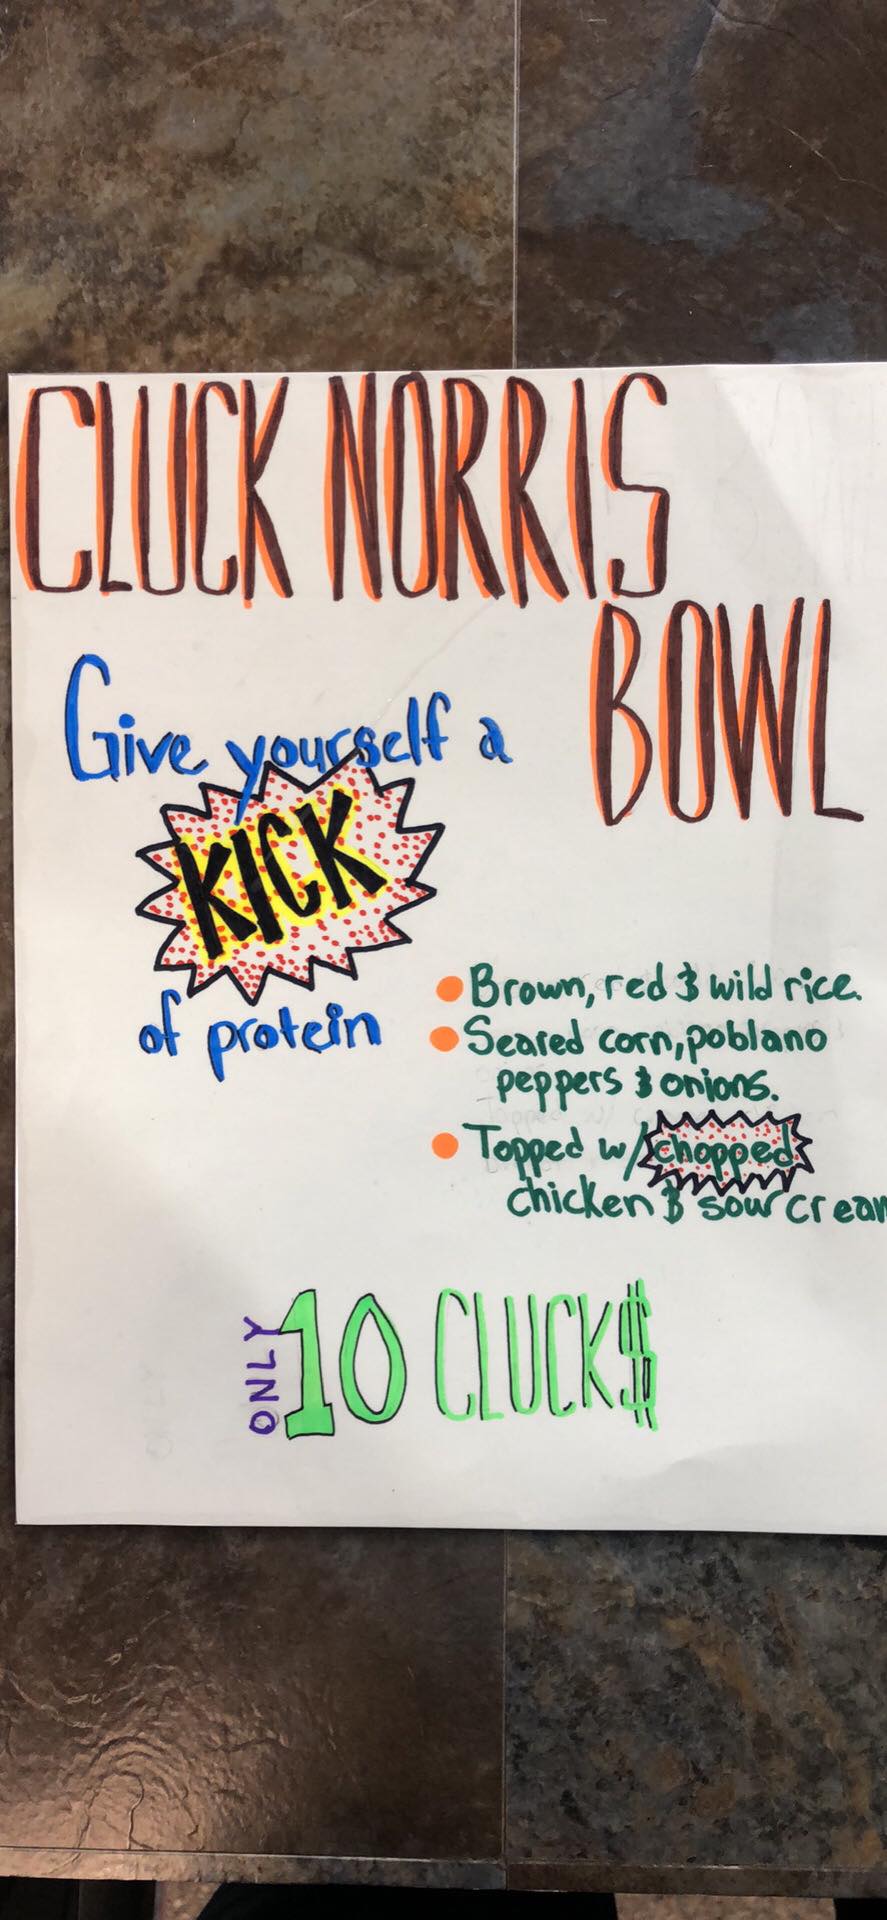 CLUCK NORRIS
BOWL
Give yourself a
KICK
of protein
Brown, red & wild rice.
Seared corn, poblano
peppers & onions.
Topped w/ chopped
chicken & sour cream
ONLY
10 CLUCK$